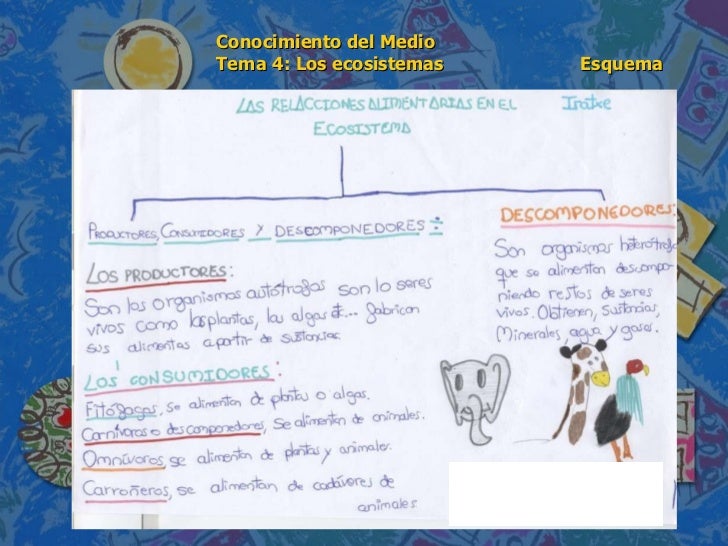 Conocimiento del Medio
Tema 4: Los ecosistemas Esquema
LAS RELACCIONES ALIMENTARIAS EN EL Iratxe
ECOSISTEMA
PRODUCTORES, CONSUMIDORES Y DESCOMPONEDORES:
LOS PRODUCTORES:
Son los organismos autótrofos son lo seres
vivos como las plantas, las algas etc... fabrican
sus alimentos a partir de sustancias.
LOS CONSUMIDORES:
Fitófagos, se alimentan de plantas o algas.
Carnívoros o descomponedores, se alimentan de animales.
Omnívoros, se alimentan de plantas y animales.
Carroñeros, se alimentan de cadáveres de
animales.
DESCOMPONEDORES:
Son organismos heterótrofo
que se alimentan descompo-
niendo restos de seres
vivos. Obtienen, sustancias,
Minerales, agua y gases.